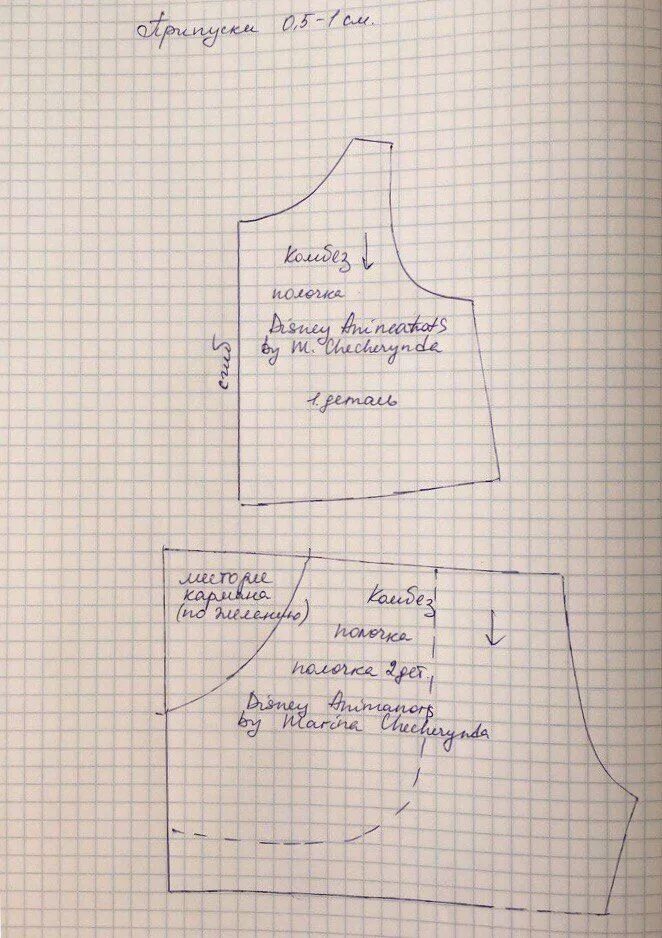 Припуски 0,5-1 см.
Комбез
полочка
Disney Animeatots
by M. Checherynda
сгиб
1 деталь
кармана
(по желению)
Комбез
полочка
полочка 2 дет.
Disney Animanors
by Marina Checherynda